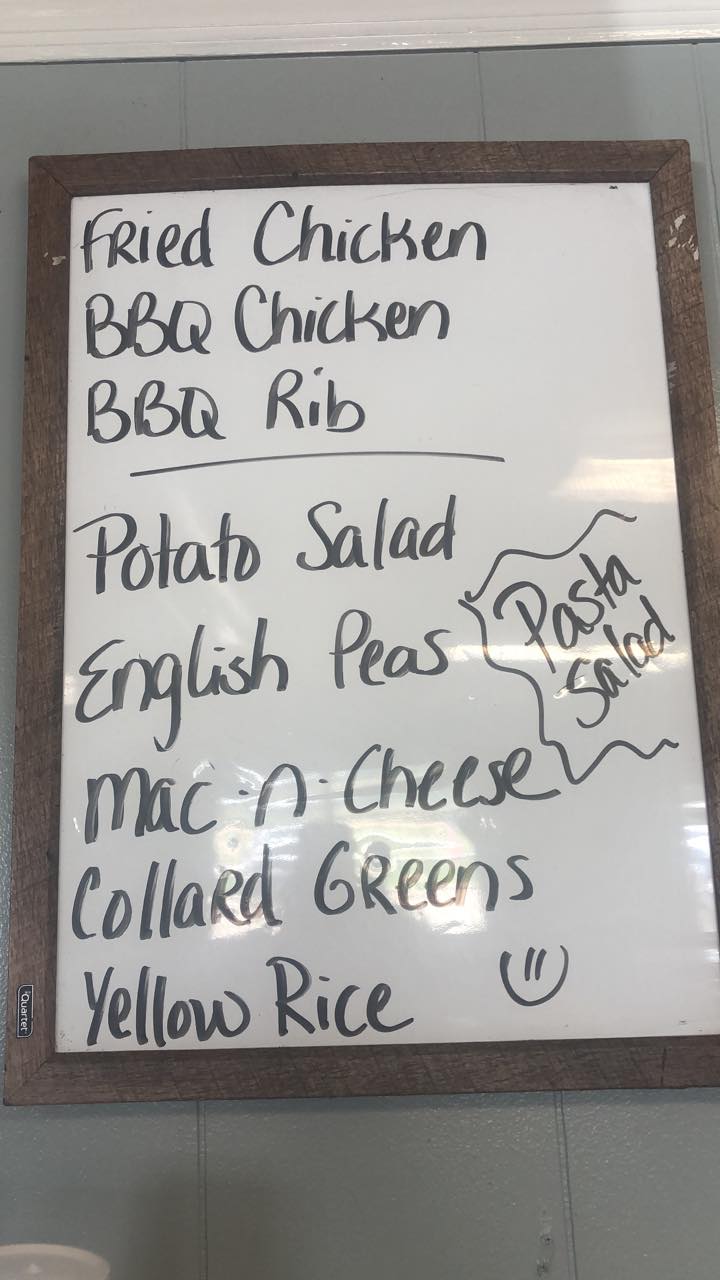 Fried Chicken
BBQ Chicken
BBQ Rib
Potato Salad
English Peas
Pasta
Salad
Mac-n-Cheese
Collard Greens
Yellow Rice
Quartet